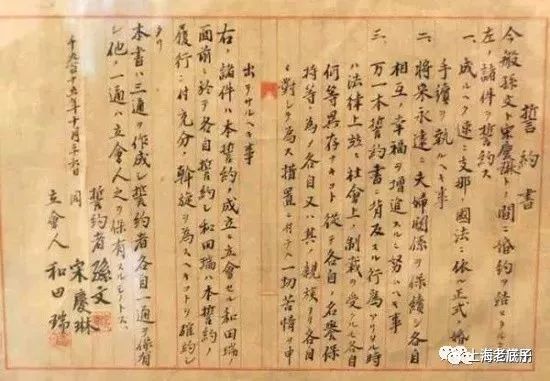 誓約書
今般孫文ト宋慶琳ト間ニ婚約ヲ諾セ
左ノ諸件ヲ誓約ス
一、成ルヘク速ニ支那ノ國法ニ依ル正式ノ婚
手續ヲ執ルヘキ事
二、將来永遠ニ夫婦關係ヲ保續シ各自
相互ノ幸福ノ増進スルニ努ムヘキ事
三、万一本誓約書ニ背反スル行為アリタル時
ハ法律上並ニ社會上ノ制裁ヲ受クルモ各自
何等異存ナキコト従テ各自ノ名譽保
持等ノ為メ各自又ハ其ノ親族ヨリ各自
ニ對シタ為ス措置ニ付テハ一切苦情ヲ申
出サルヘキ事
右ノ諸件ハ本誓約ノ成立ニ立會セル和田瑞
面前ニ於テ各自誓約シ和田瑞ハ本誓約ノ
履行ニ付充分ノ斡旋ヲ為スヘキコトヲ確約
タリ
本書ハ三通ヲ作成シ誓約者各自一通ヲ保有
シ他ノ一通ハ立會人之ヲ保有スルモノトス
誓約者 孫文
千九百十五年十月二十六日 同 宋慶琳
立會人 和田瑞
上海老底子